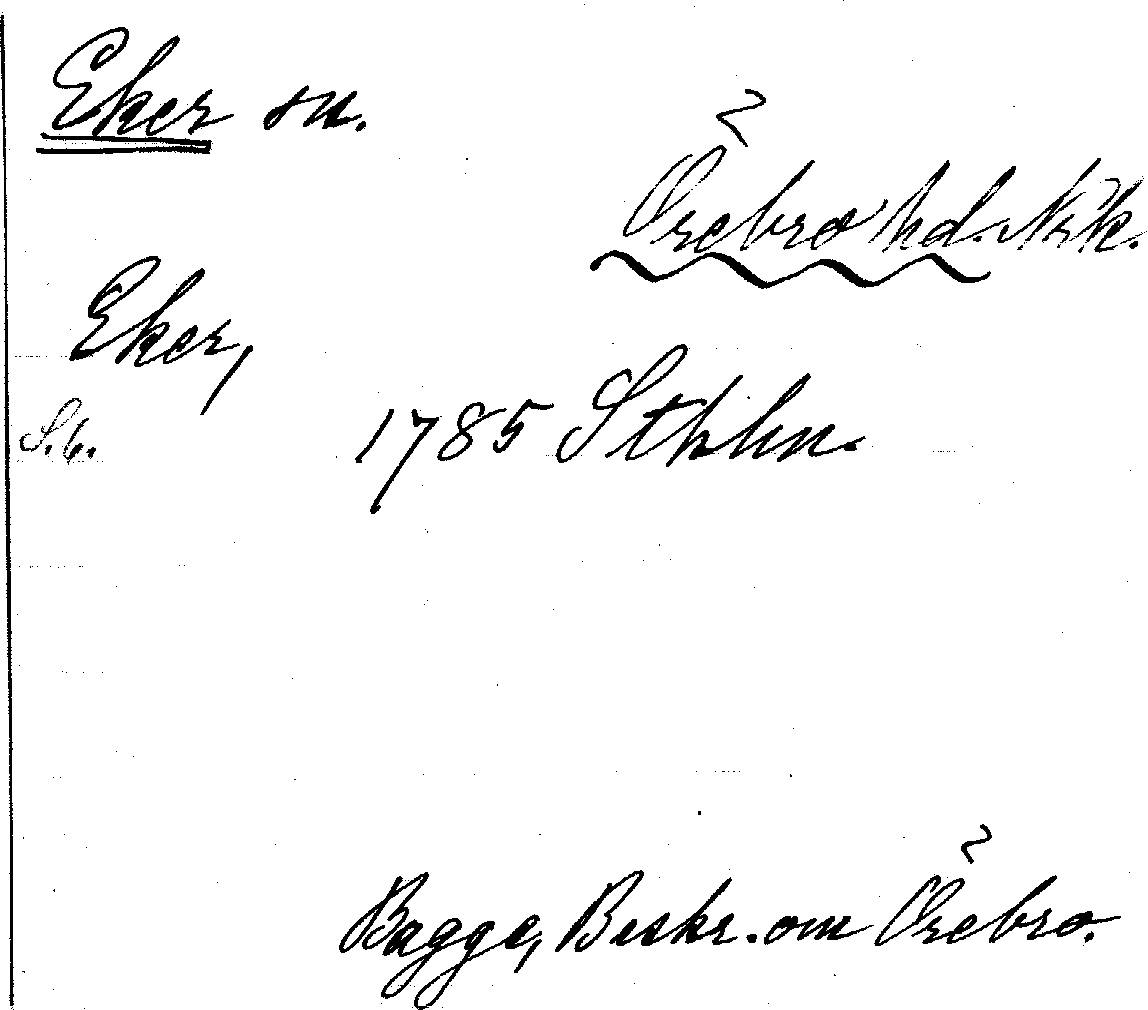 Eker sn.
Örebro hd. Nrk.
Eker,
S. 6. 1785 Sthlm.
Bagge, Beskr. om Örebro.